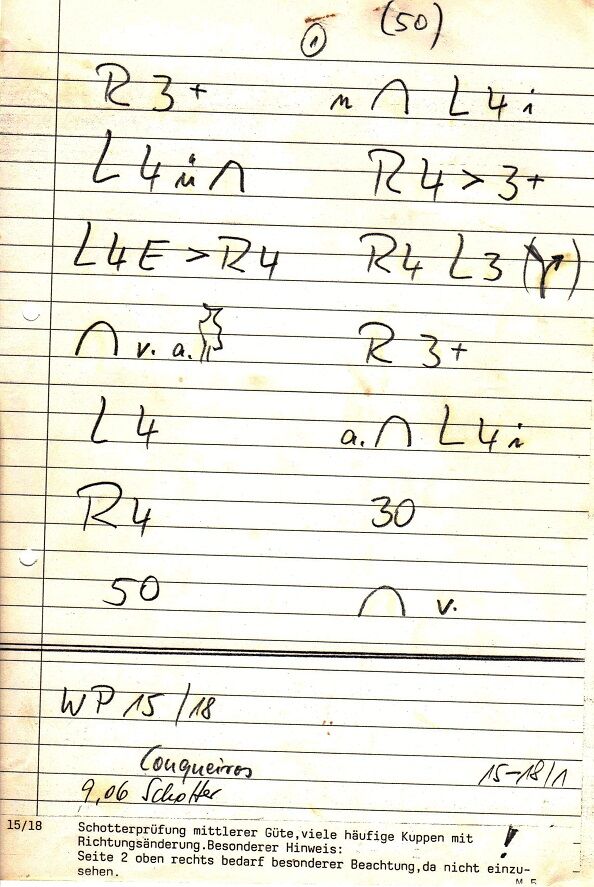 ① (50)
R 3+
n ∩ L 4 i
L 4 ü ∩
R 4 > 3+
L 4 E > R 4
R 4 L 3 (
∩ v. a.
R 3+
L 4
a. ∩ L 4 i
R 4
30
50
∩ v.
WP 15/18
Couqueiros
15-18/1
9,06 Schotter
15/18 Schotterprüfung mittlerer Güte,viele häufige Kuppen mit
Richtungsänderung.Besonderer Hinweis: !
Seite 2 oben rechts bedarf besonderer Beachtung,da nicht einzu-
sehen.